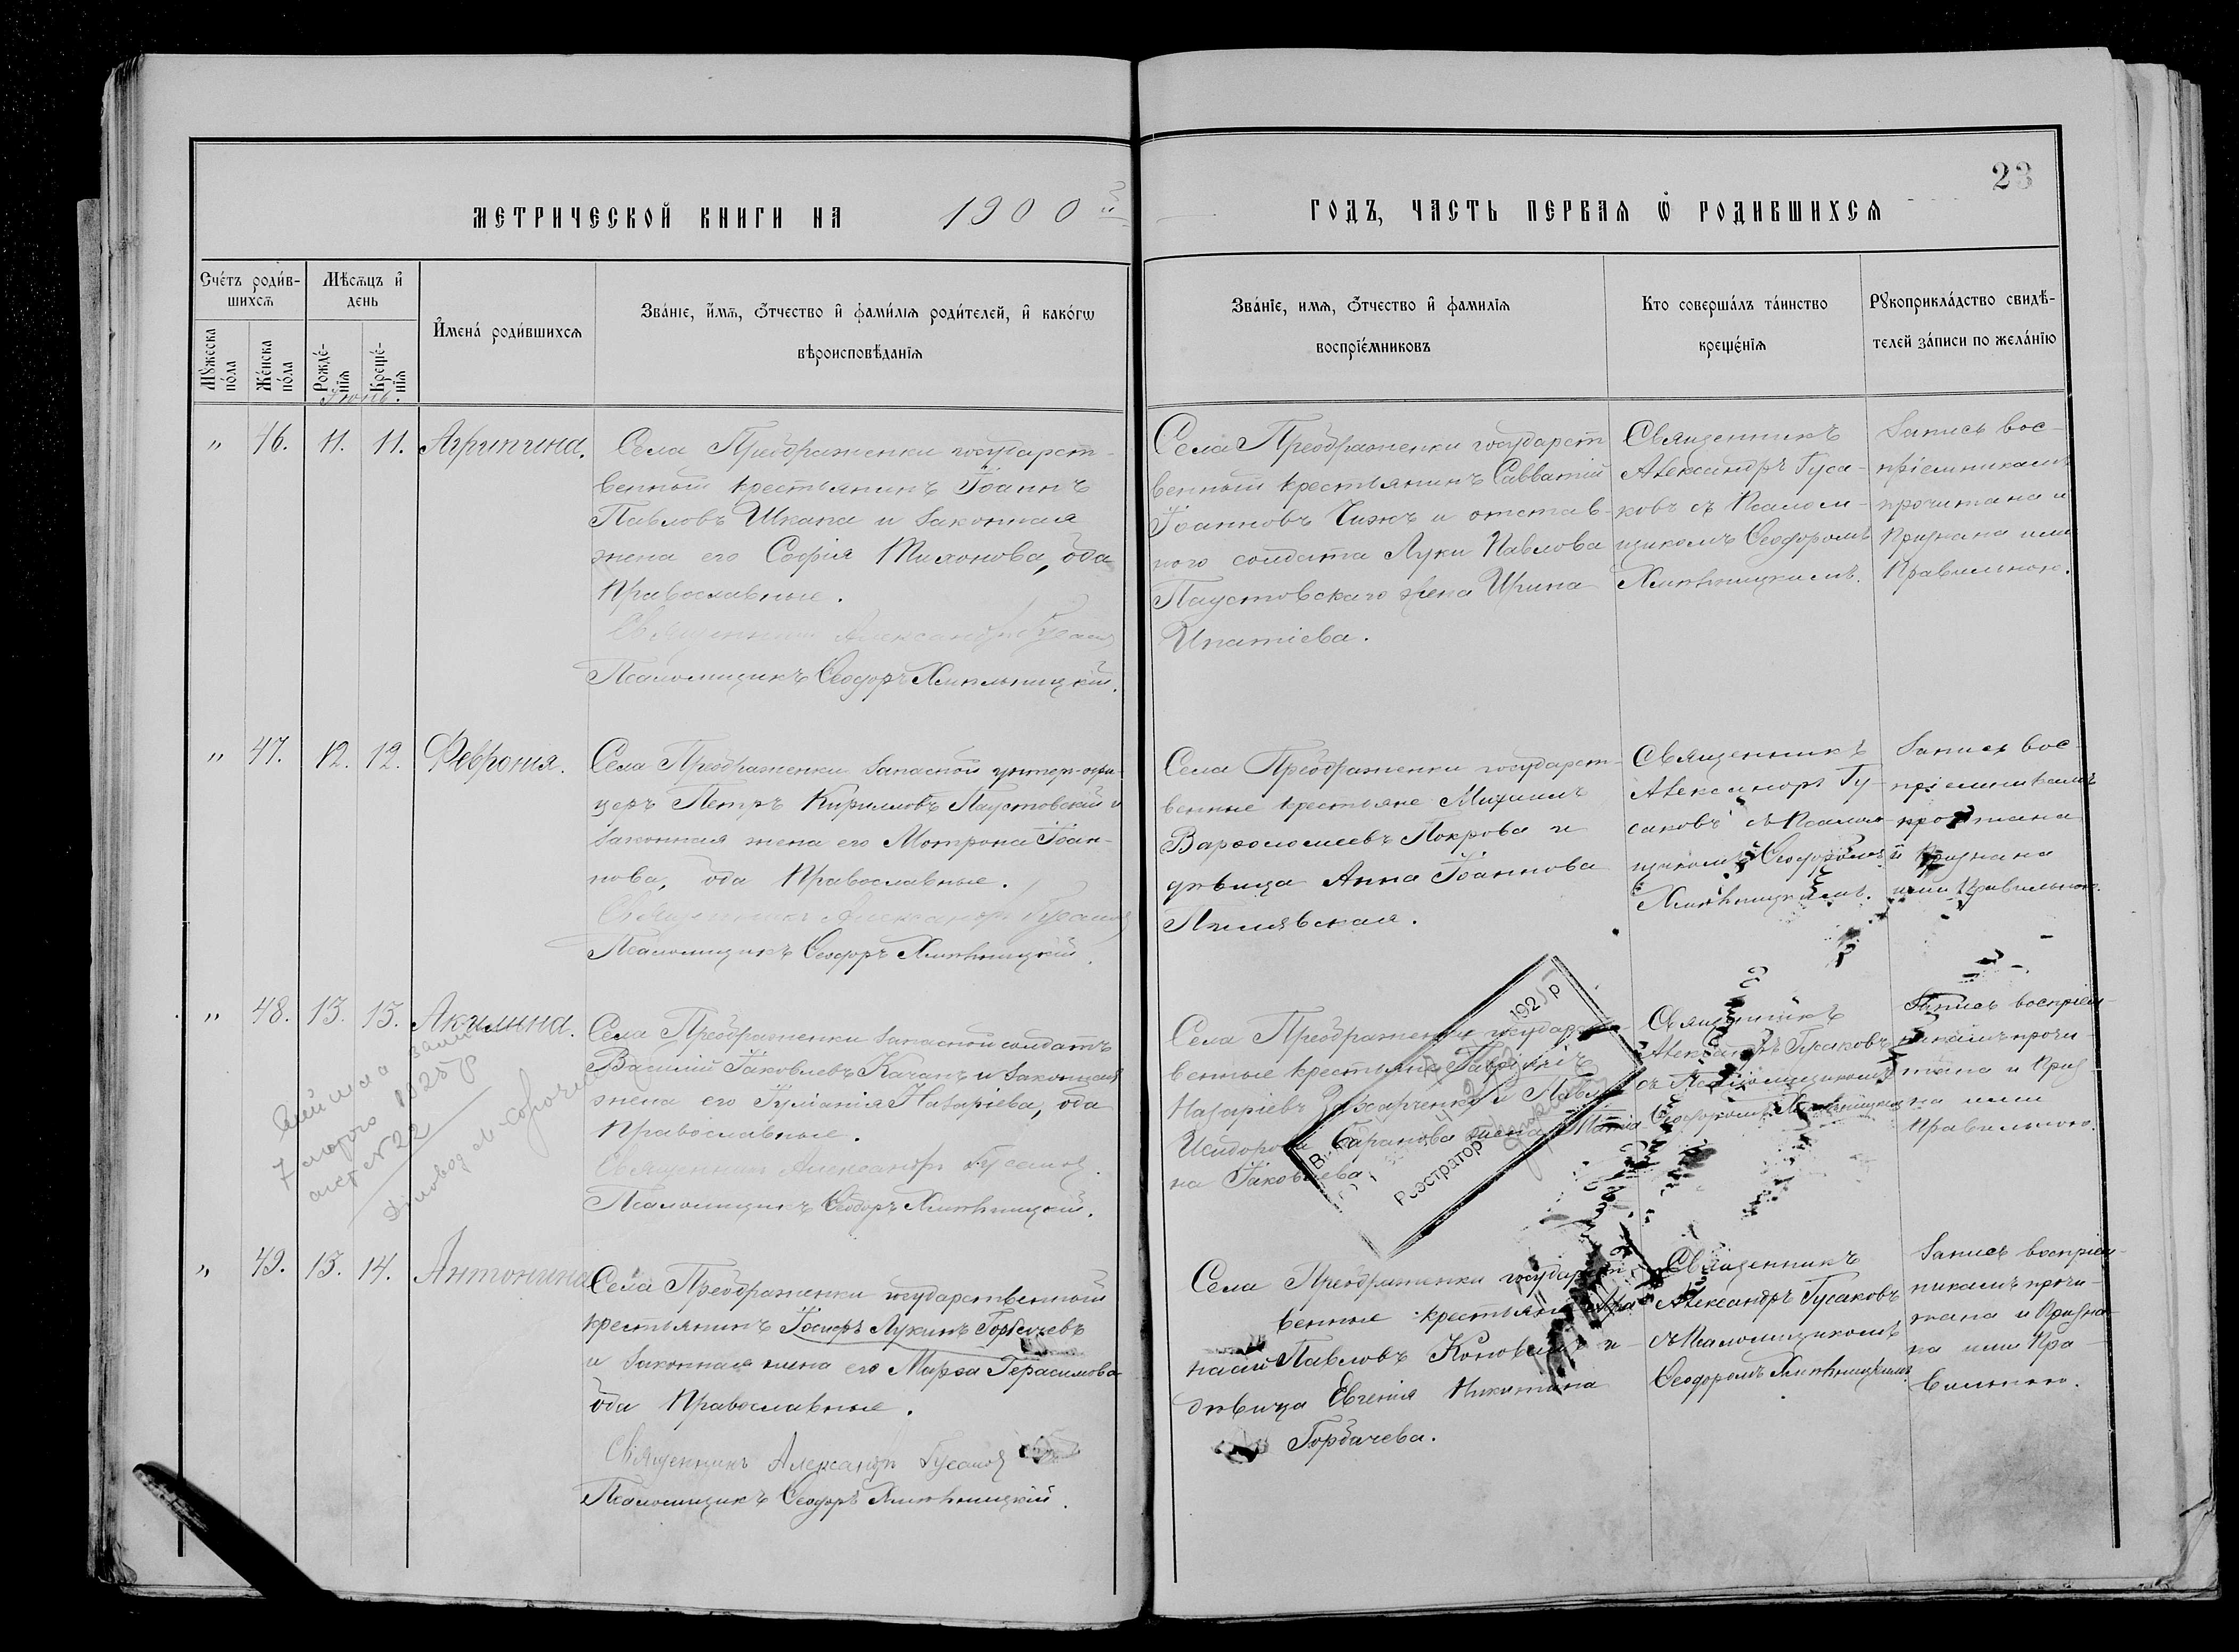 23
МЕТРИЧЕСКОЙ КНИГИ НА 1900й
ГОДЪ, ЧАСТЬ ПЕРВАЯ Ѡ РОДИВШИХСЯ
Счетъ родив-
шихся
Мѣсяцъ и
день
Имена родившихся
Званіе, имя, отчество и фамилія родителей, и какогѡ
вѣроисповѣданія
Мужеска
пола
Женска
пола
Рожде-
нія
Креще-
нія
Іюнь.
Званіе, имя, отчество и фамилія
воспріемниковъ
Кто совершалъ таинство
крещенія
Рукоприкладство свидѣ-
телей записи по желанію
" 46. 11. 11. Агрипина.
Села Преображенки государст-
венный крестьянинъ Іоаннъ
Павловъ Шкапа и законная
жена его Софія Тихонова, оба
Православные.
Священникъ Александръ Гусаковъ
Псаломщикъ Ѳеодоръ Хмѣльницкій.
Села Преображенки государст
венный крестьянинъ Савватій
Іоанновъ Чижъ и отстав-
ного солдата Луки Павлова
Паустовскаго жена Ирина
Ипатіева.
Священникъ
Александръ Гуса-
ковъ съ Псалом-
щикомъ Ѳеодоромъ
Хмѣльницкимъ.
Запись вос-
пріемникамъ
прочитана и
признана ими
Правильною.
" 47. 12. 12. Февронія.
Села Преображенки запасной унтер-офи-
церъ Петръ Кирилловъ Паустовскій и
законная жена его Мотрона Іоан-
нова, оба Православные.
Священникъ Александръ Гусаковъ
Псаломщикъ Ѳеодоръ Хмѣльницкій.
Села Преображенки государст-
венные крестьяне Михаилъ
Варѳоломеевъ Покрова и
дѣвица Анна Іоаннова
Священникъ
Александръ Гу-
саковъ съ Псалом-
щикомъ Ѳеодоромъ
Хмѣльницкимъ.
Запись вос-
пріемникамъ
прочитана
и признана
ими Правильною.
" 48. 13. 13. Акилина.
Села Преображенки запасной солдатъ
Василій Іаковлевъ Качанъ и законная
жена его Іуліанія Назаріева, оба
Православные.
Священникъ Александръ Гусаковъ.
Псаломщикъ Ѳеодоръ Хмѣльницкій.
7 марта 1925 р
акт №22
Села Преображенки государст-
венные крестьяне Гавріилъ
Назаріевъ Захарченко и Павла
Исидорова Баранова жена
на Іаковлева
192 р
Реєстратор
Священникъ
Александръ Гусаковъ
съ Псаломщикомъ
Ѳеодоромъ Хмѣльницкимъ
Запись воспріем-
никамъ прочи-
тана и Приз-
на ими
Правильною.
" 49. 13. 14. Антонина
Села Преображенки государственный
крестьянинъ Іосифъ Лукинъ Горбачевъ
и законная жена его Марѳа Герасимова
оба Православные.
Священникъ Александръ Гусаковъ
Псаломщикъ Ѳеодоръ Хмѣльницкій.
Села Преображенки государст-
венные крестьяне
Павловъ Коновалъ и
дѣвица Евгенія Никитина
Горбачева.
Священникъ
Александръ Гусаковъ
съ Псаломщикомъ
Ѳеодоромъ Хмѣльницкимъ
Запись воспріем-
никамъ прочи-
тана и Призна-
на ими Пра-
вильною.